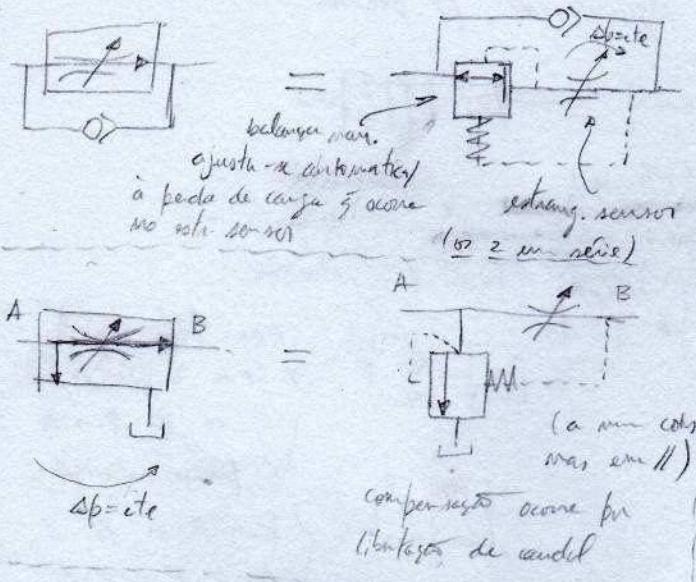 Δp=cte
=
balança man.
ajusta-se automatica/
à perda de carga q̃ ocorre
no estr. sensor
estrang. sensor
(os 2 em série)
A B
=
A B
Δp=cte
(a mm
mas em //)
compensação ocorre por
de caudal